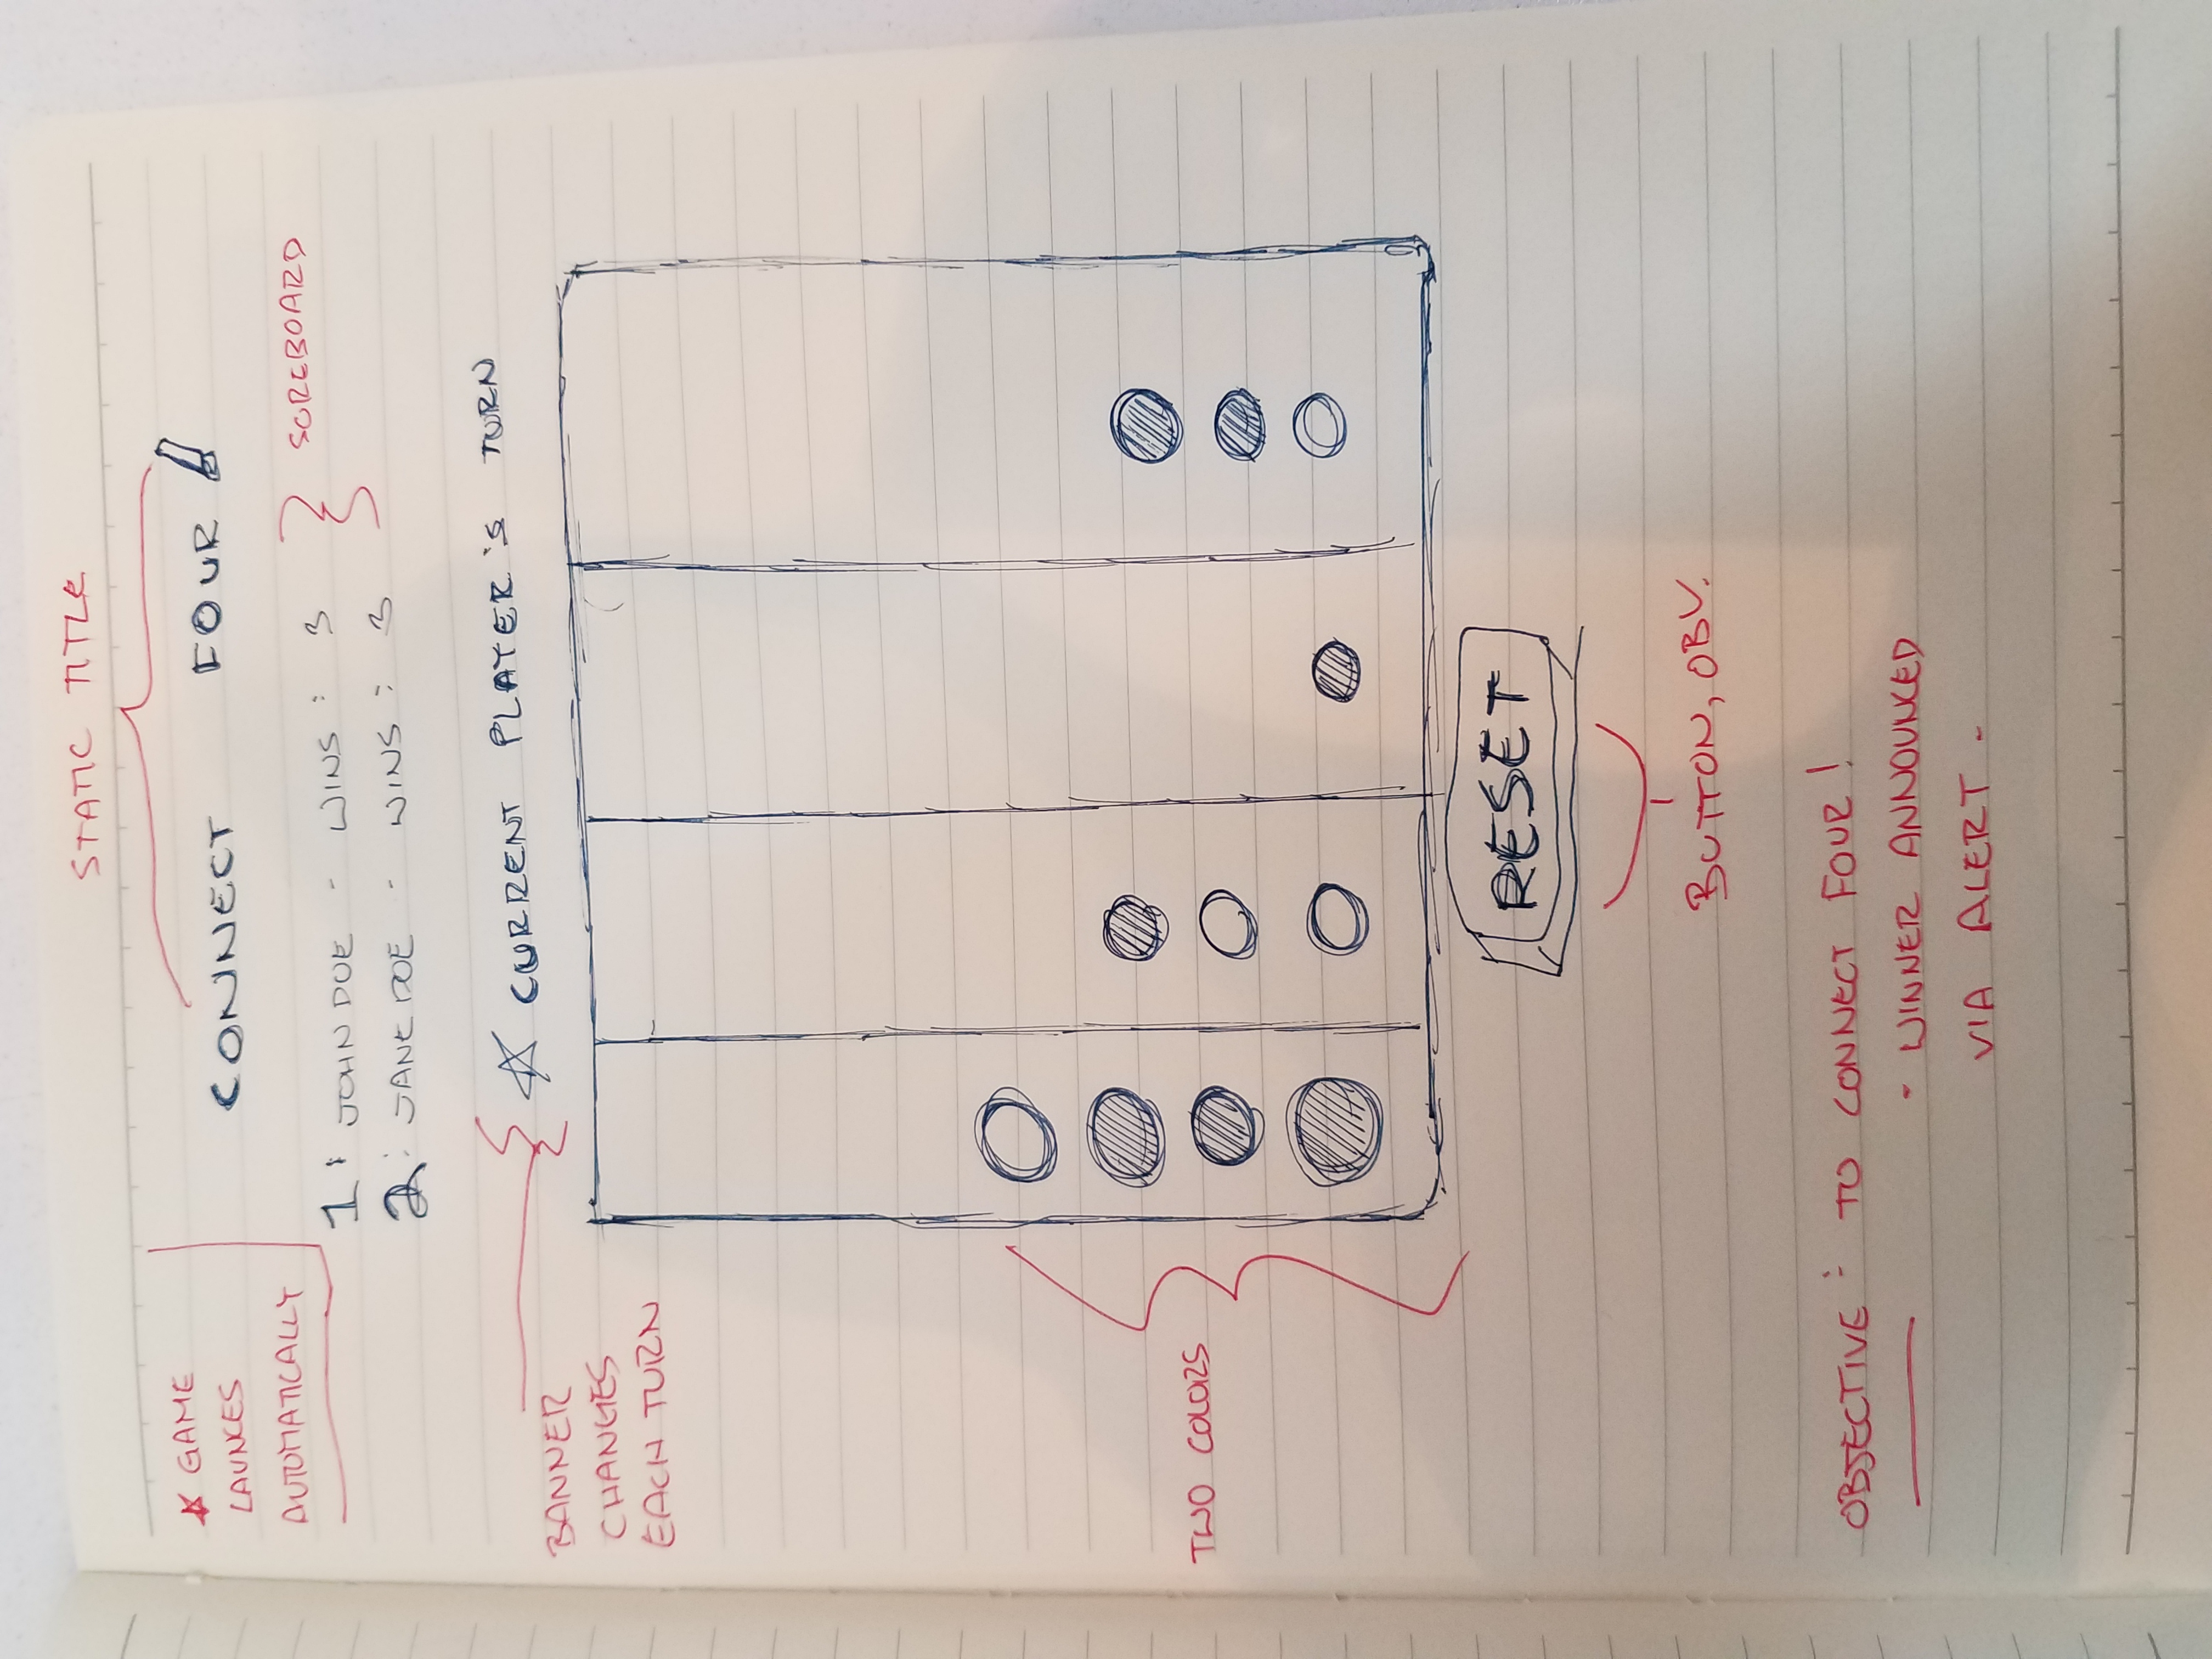 STATIC TITLE
★ GAME
LAUNCES
AUTOMATICALLY
CONNECT FOUR!
1: JOHN DOE - WINS: 3
2: JANE DOE - WINS: 3
SCOREBOARD
☆ CURRENT PLAYER'S TURN
BANNER
CHANGES
EACH TURN
TWO COLORS
RESET
BUTTON, OBV.
OBJECTIVE: TO CONNECT FOUR!
- WINNER ANNOUNCED
VIA ALERT -